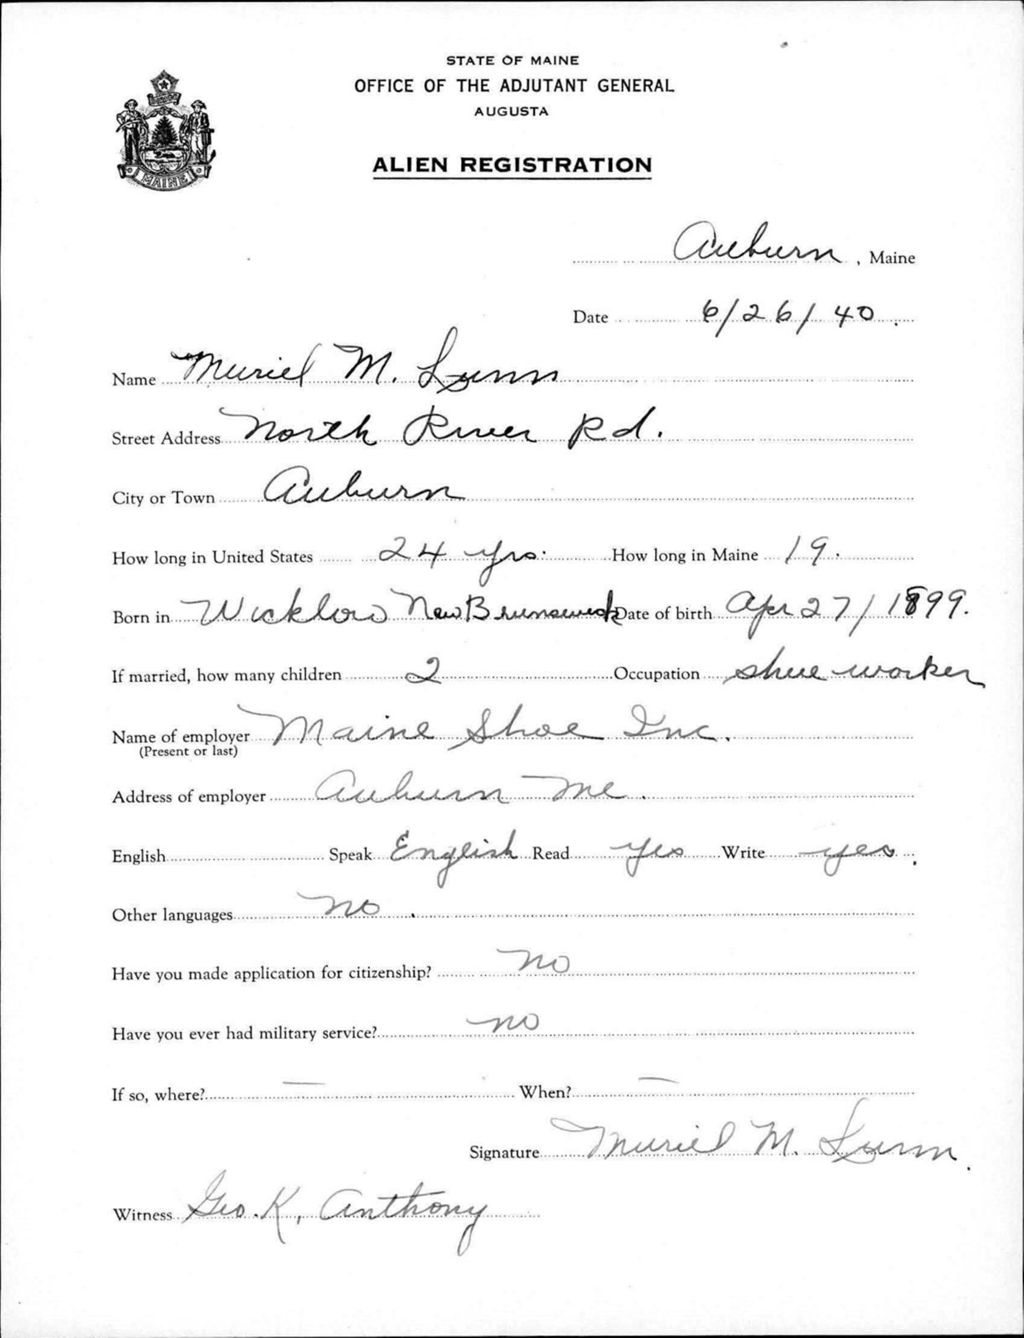 STATE OF MAINE
OFFICE OF THE ADJUTANT GENERAL
AUGUSTA
MAINE
ALIEN REGISTRATION
Auburn, Maine
Date 6/26/40.
Name Muriel M. Lunn
Street Address North River Rd.
City or Town Auburn
How long in United States 24 yrs. How long in Maine 19.
Born in Wicklow New Brunswick Date of birth Apr 27/1899.
If married, how many children 2 Occupation shoe worker
Name of employer Maine Shoe Inc.
(Present or last)
Address of employer Auburn Me.
English Speak English Read yes Write yes.
Other languages no.
Have you made application for citizenship? no
Have you ever had military service? no
If so, where? — When? —
Signature Muriel M. Lunn.
Witness Geo. K. Anthony